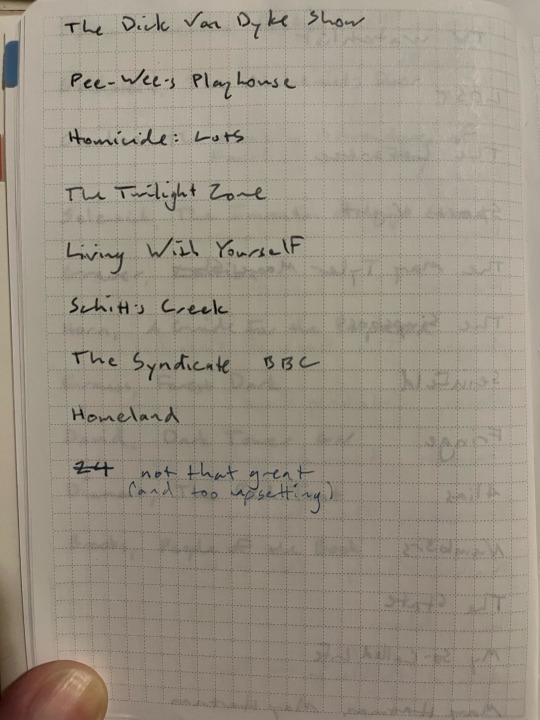 The Dick Van Dyke Show
Pee-Wee's Playhouse
Homicide: LotS
The Twilight Zone
Living With Yourself
Schitt's Creek
The Syndicate BBC
Homeland
24 not that great
(and too upsetting)